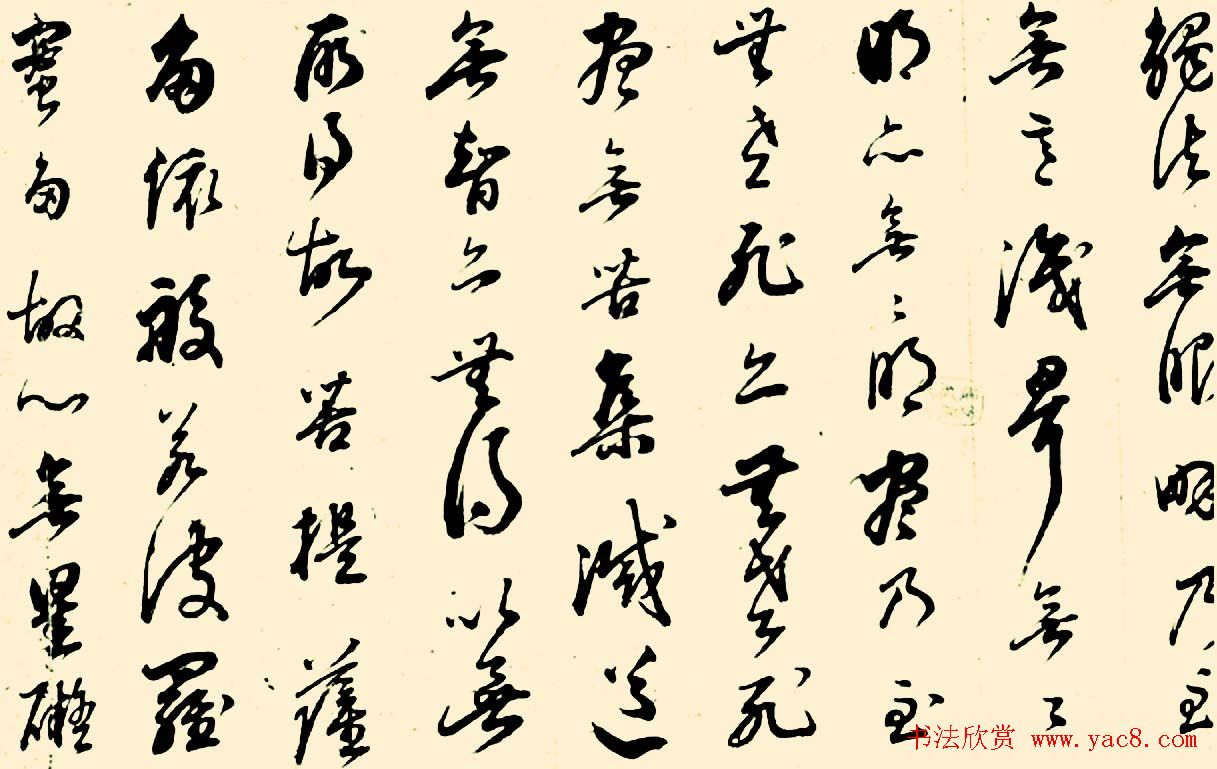 觸法無眼界乃至
無意識界無〻
明亦無〻明盡乃至
無老死亦無老死
盡無苦集滅道
無智亦無得以無
所得故菩提薩
依般若波羅
蜜多故心無罣礙
书法欣赏 www.yac8.com